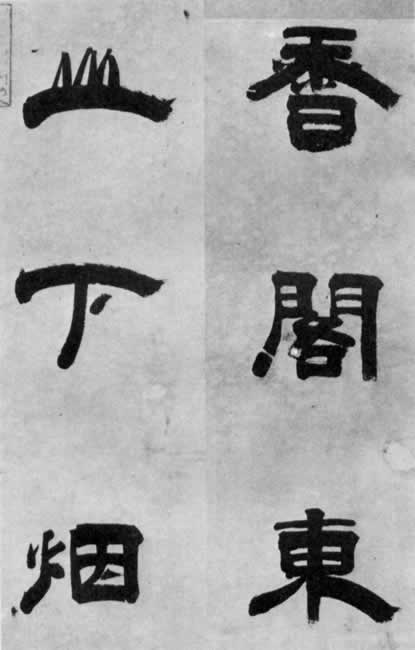 香閣東
山下烟